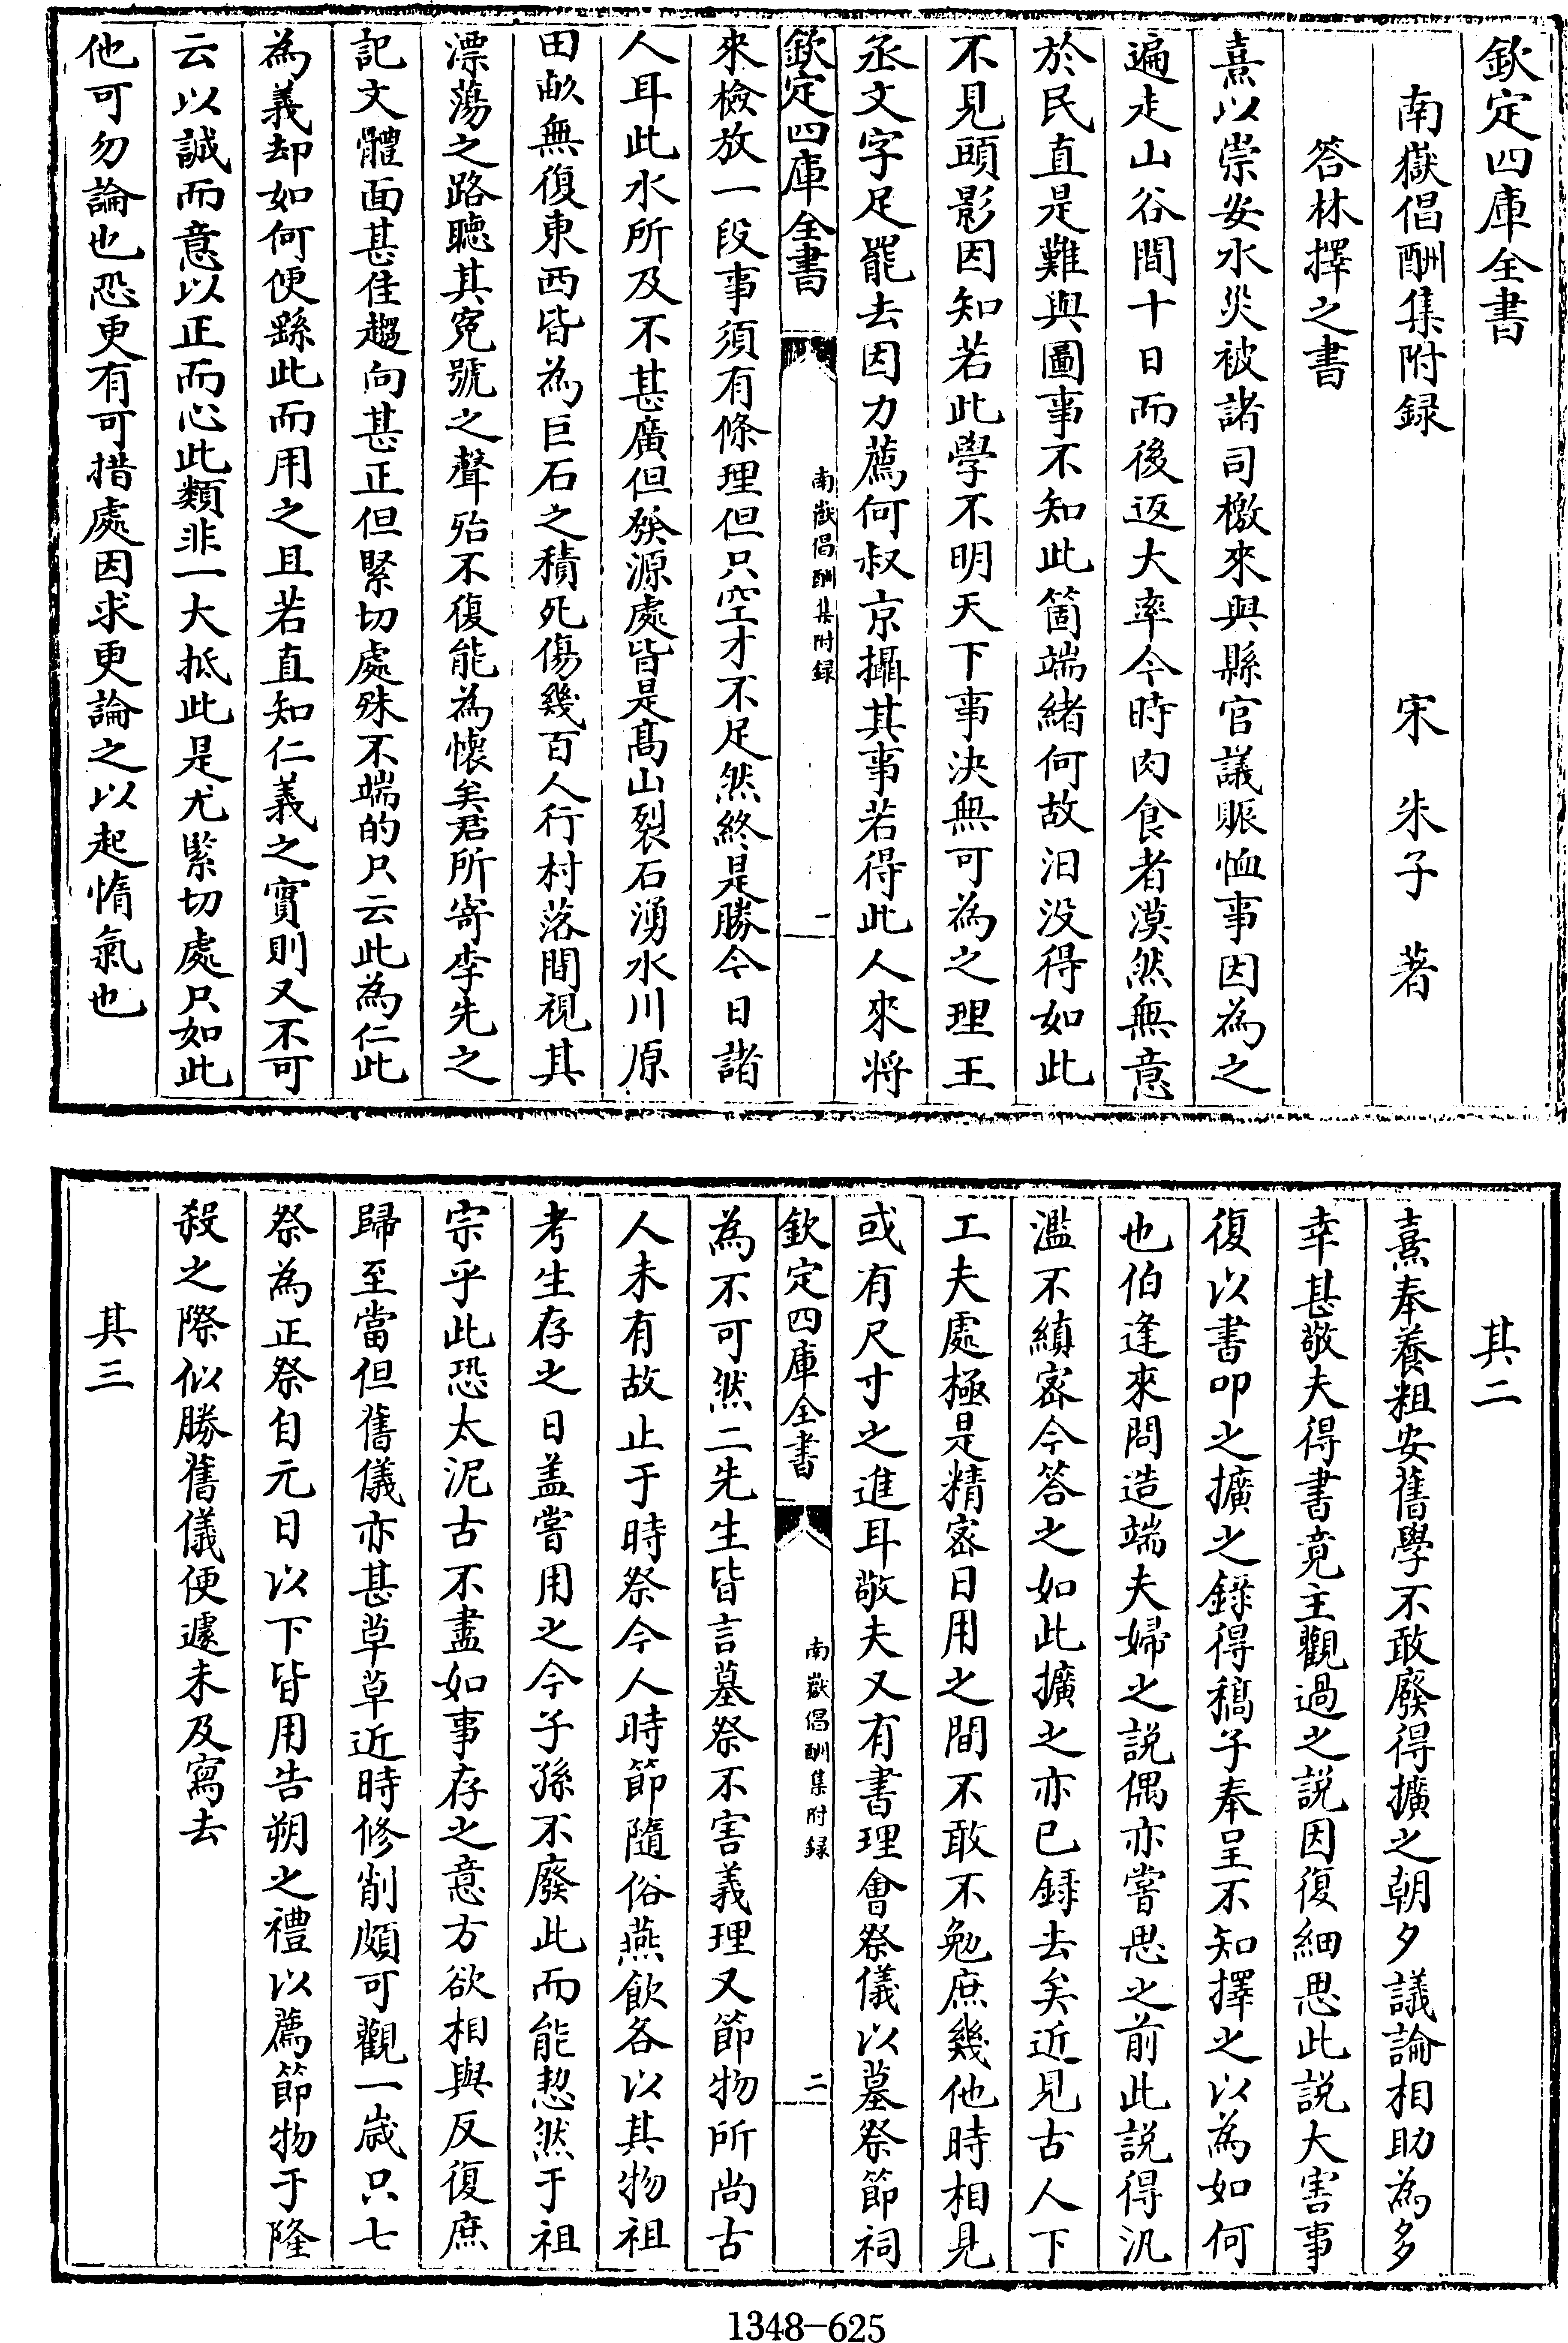 欽定四庫全書
南嶽倡酬集附録
宋 朱子 著
答林擇之書
熹以崇安水災被諸司檄來與縣官議賑恤事因為之
遍走山谷間十日而後返大率今時肉食者漠然無意
於民直是難與圖事不知此箇端緒何故汩没得如此
不見頭影因知若此學不明天下事決無可為之理王
丞文字足罷去因力薦何叔京攝其事若得此人來將
欽定四庫全書
南嶽倡酬集附録
一
來檢放一段事須有條理但只空才不足然終是勝今日諸
人耳此水所及不甚廣但發源處皆是髙山裂石湧水川原
田畝無復東西皆為巨石之積死傷幾百人行村落間視其
漂蕩之路聽其寃號之聲殆不復能為懷矣君所寄李先之
記文體面甚佳趨向甚正但緊切處殊不端的只云此為仁此
為義却如何便繇此而用之且若直知仁義之實則又不可
云以誠而意以正而心此類非一大抵此是尤緊切處只如此
他可勿論也恐更有可措處因求更論之以起惰氣也
其二
熹奉養粗安舊學不敢廢得擴之朝夕議論相助為多
幸甚敬夫得書竟主觀過之説因復細思此説大害事
復以書叩之擴之錄得稿子奉呈不知擇之以為如何
也伯逢來問造端夫婦之説偶亦嘗思之前此説得汎
濫不縝密今答之如此擴之亦已録去矣近見古人下
工夫處極是精密日用之間不敢不勉庶幾他時相見
或有尺寸之進耳敬夫又有書理會祭儀以墓祭節祠
欽定四庫全書
南嶽倡酬集附録
二
為不可然二先生皆言墓祭不害義理又節物所尚古
人未有故止于時祭今人時節隨俗燕飲各以其物祖
考生存之日盖嘗用之今子孫不廢此而能恝然于祖
宗乎此恐太泥古不盡如事存之意方欲相與反復庶
歸至當但舊儀亦甚草草近時修削頗可觀一歳只七
祭為正祭自元日以下皆用告朔之禮以薦節物于隆
殺之際似勝舊儀便遽未及寫去
其三
1348-625